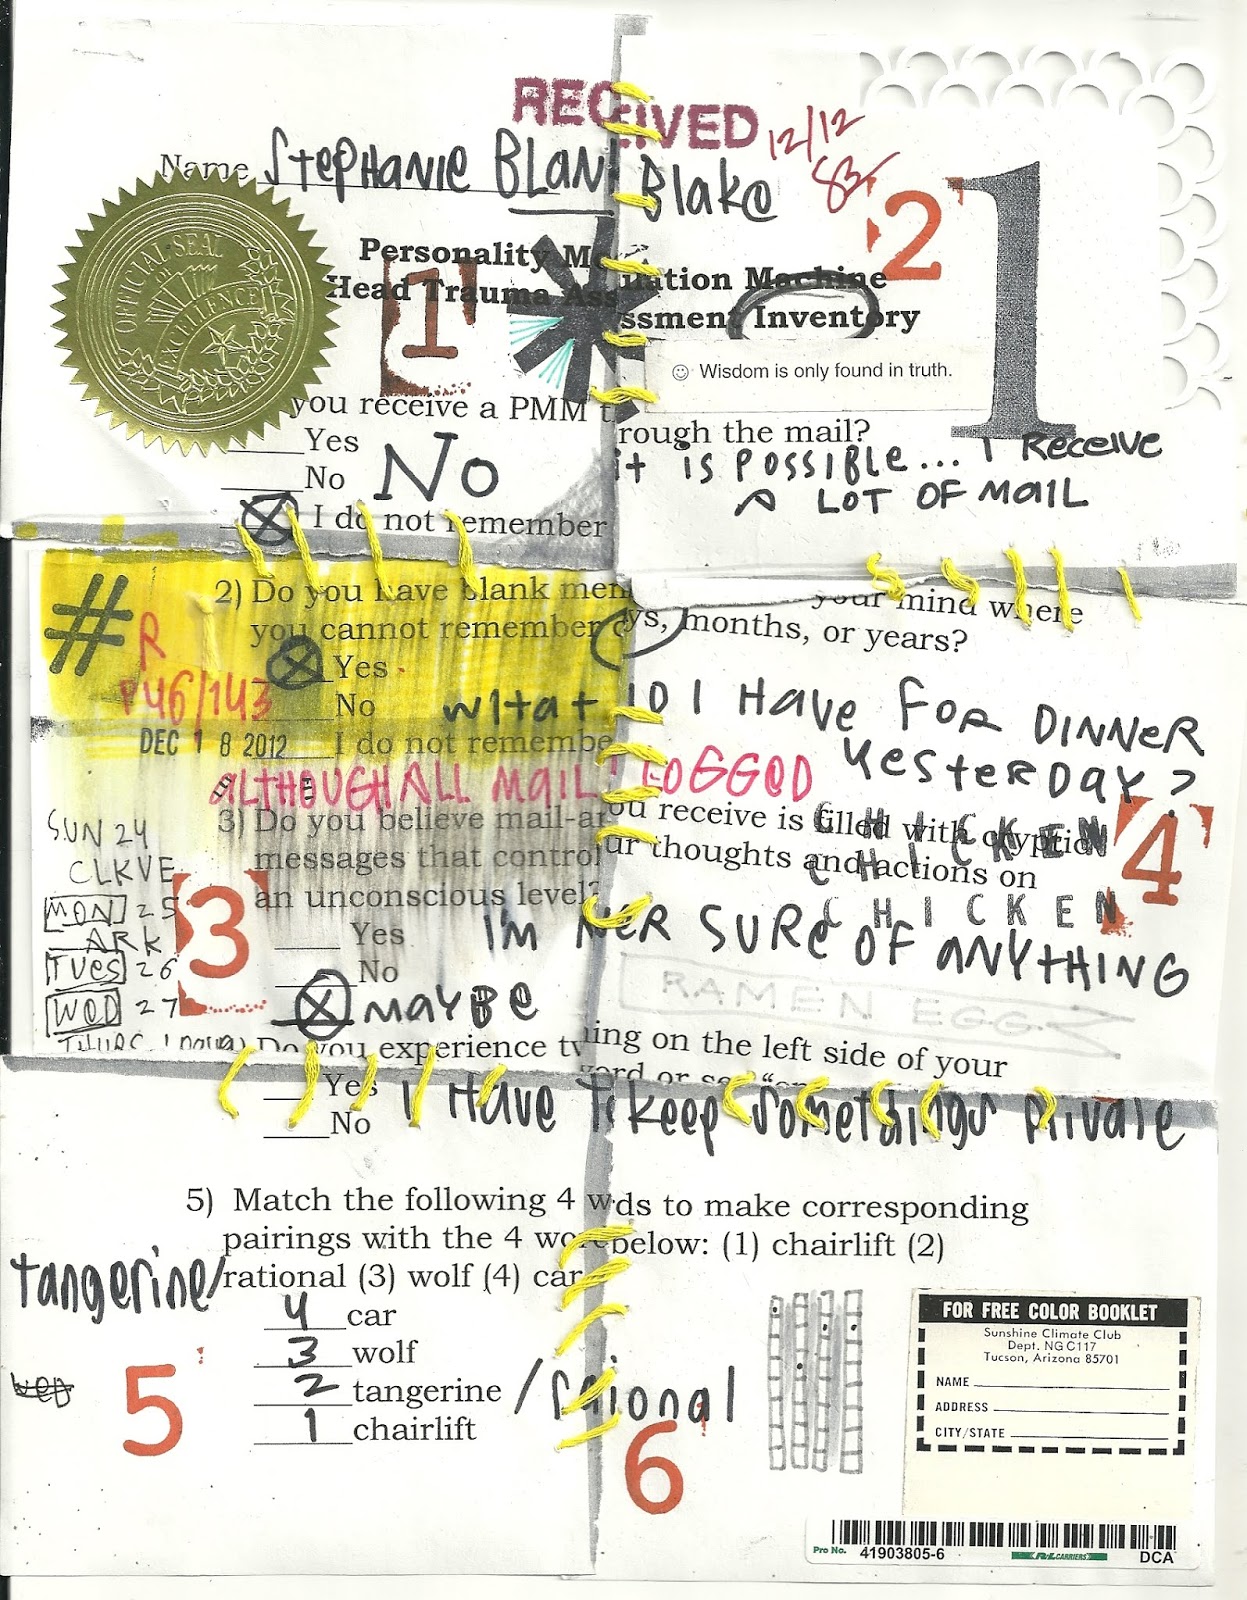 RECEIVED 12/12
Name Stephanie BLAN Blake
83
OFFICIAL SEAL OF EXCELLENCE
Personality M ulation Machine
Head Trauma Ass ssment Inventory
1
2
1
☺ Wisdom is only found in truth.
you receive a PMM t rough the mail?
____Yes
____No NO
it is possible... I Receive
A LOT OF MAIL
I do not remember
#
2) Do you have blank mem your mind where
you cannot remember d ys, months, or years?
Yes
R
P46/143
____No
WHAT DID I HAVE FOR DINNER
YESTERDAY?
DEC 18 2012 ____I do not remembe
ALTHOUGH ALL MAIL LOGGED
3) Do you believe mail-ar ou receive is filled with cryptic
messages that control ur thoughts and actions on
an unconscious level?
CHICKEN
CHICKEN
CHICKEN
4
SUN 24
CLKVE
MON 25
ARK
TUES 26
WED 27
3
____Yes
____No
I'M NEVER SURE OF ANYTHING
MAYBE
RAMEN EGG
Do you experience tw hing on the left side of your
____Yes
____No
I Have to keep some things private
5) Match the following 4 w ds to make corresponding
pairings with the 4 wor below: (1) chairlift (2)
tangerine/rational (3) wolf (4) car
4 car
3 wolf
2 tangerine /rational
1 chairlift
5
6
FOR FREE COLOR BOOKLET
Sunshine Climate Club
Dept. NG C117
Tucson, Arizona 85701
NAME
ADDRESS
CITY/STATE
Pro No. 41903805-6 R+L CARRIERS DCA